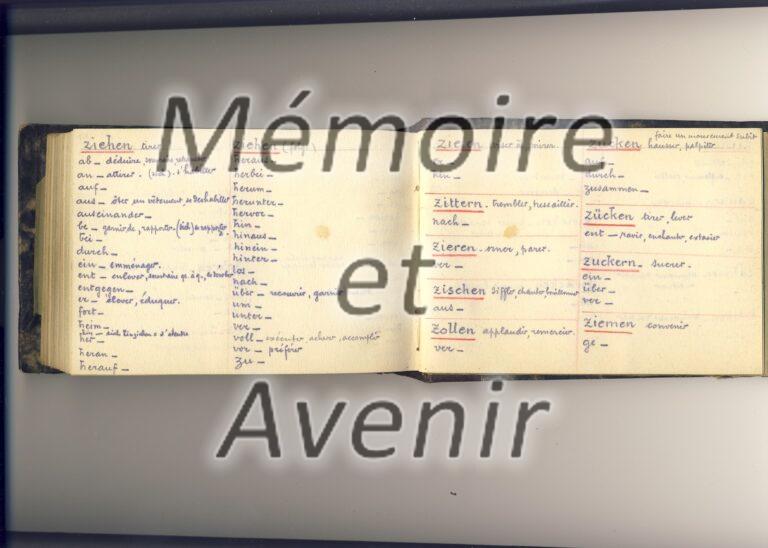 Mémoire
et
Avenir
ziehen tirer
ab - déduire,
an - attirer. (sich). s'habiller
auf -
aus - ôter un vêtement, se deshabiller
auseinander -
be - garnir de, rapporter (sich) se rapporter
bei -
durch -
ein - emménager.
ent - enlever, soustraire qc à q.,
entgegen -
er - élever, éduquer.
fort -
heim -
hin - sich hinziehen = s'étendre
her -
heran -
herauf -
ziehen
heraus -
herbei -
herum -
herunter -
hervor -
hin -
hinaus -
hinein -
hinter -
los -
nach -
über - recouvrir, garnir
um -
unter -
ver -
voll - exécuter, achever, accomplir
vor - préférer
zu -
zielen viser
er -
hin -
zittern. trembler, tressaillir.
nach -
zieren. orner, parer.
ver -
zischen siffler, chanter,
aus -
Zollen applaudir, remercier
ver -
zucken faire un mouvement subit
hausser, palpiter
auf -
durch -
zusammen -
zücken tirer, lever
ent - ravir, enchanter, extasier
zuckern. sucrer.
ein -
über -
ver -
ziemen convenir
ge -